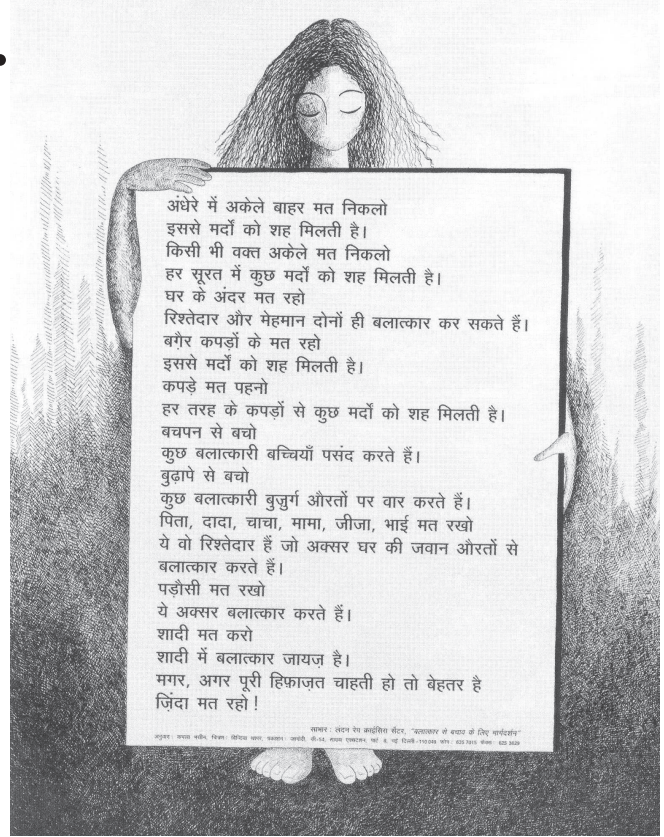 अंधेरे में अकेले बाहर मत निकलो
इससे मर्दों को शह मिलती है।
किसी भी वक्त अकेले मत निकलो
हर सूरत में कुछ मर्दों को शह मिलती है।
घर के अंदर मत रहो
रिश्तेदार और मेहमान दोनों ही बलात्कार कर सकते हैं।
बग़ैर कपड़ों के मत रहो
इससे मर्दों को शह मिलती है।
कपड़े मत पहनो
हर तरह के कपड़ों से कुछ मर्दों को शह मिलती है।
बचपन से बचो
कुछ बलात्कारी बच्चियाँ पसंद करते हैं।
बुढ़ापे से बचो
कुछ बलात्कारी बुज़ुर्ग औरतों पर वार करते हैं।
पिता, दादा, चाचा, मामा, जीजा, भाई मत रखो
ये वो रिश्तेदार हैं जो अक्सर घर की जवान औरतों से
बलात्कार करते हैं।
पड़ौसी मत रखो
ये अक्सर बलात्कार करते हैं।
शादी मत करो
शादी में बलात्कार जायज़ है।
मगर, अगर पूरी हिफ़ाज़त चाहती हो तो बेहतर है
ज़िंदा मत रहो !
साभार : लंदन रेप क्राईसिस सेंटर, "बलात्कार से बचाव के लिए मार्गदर्शन"